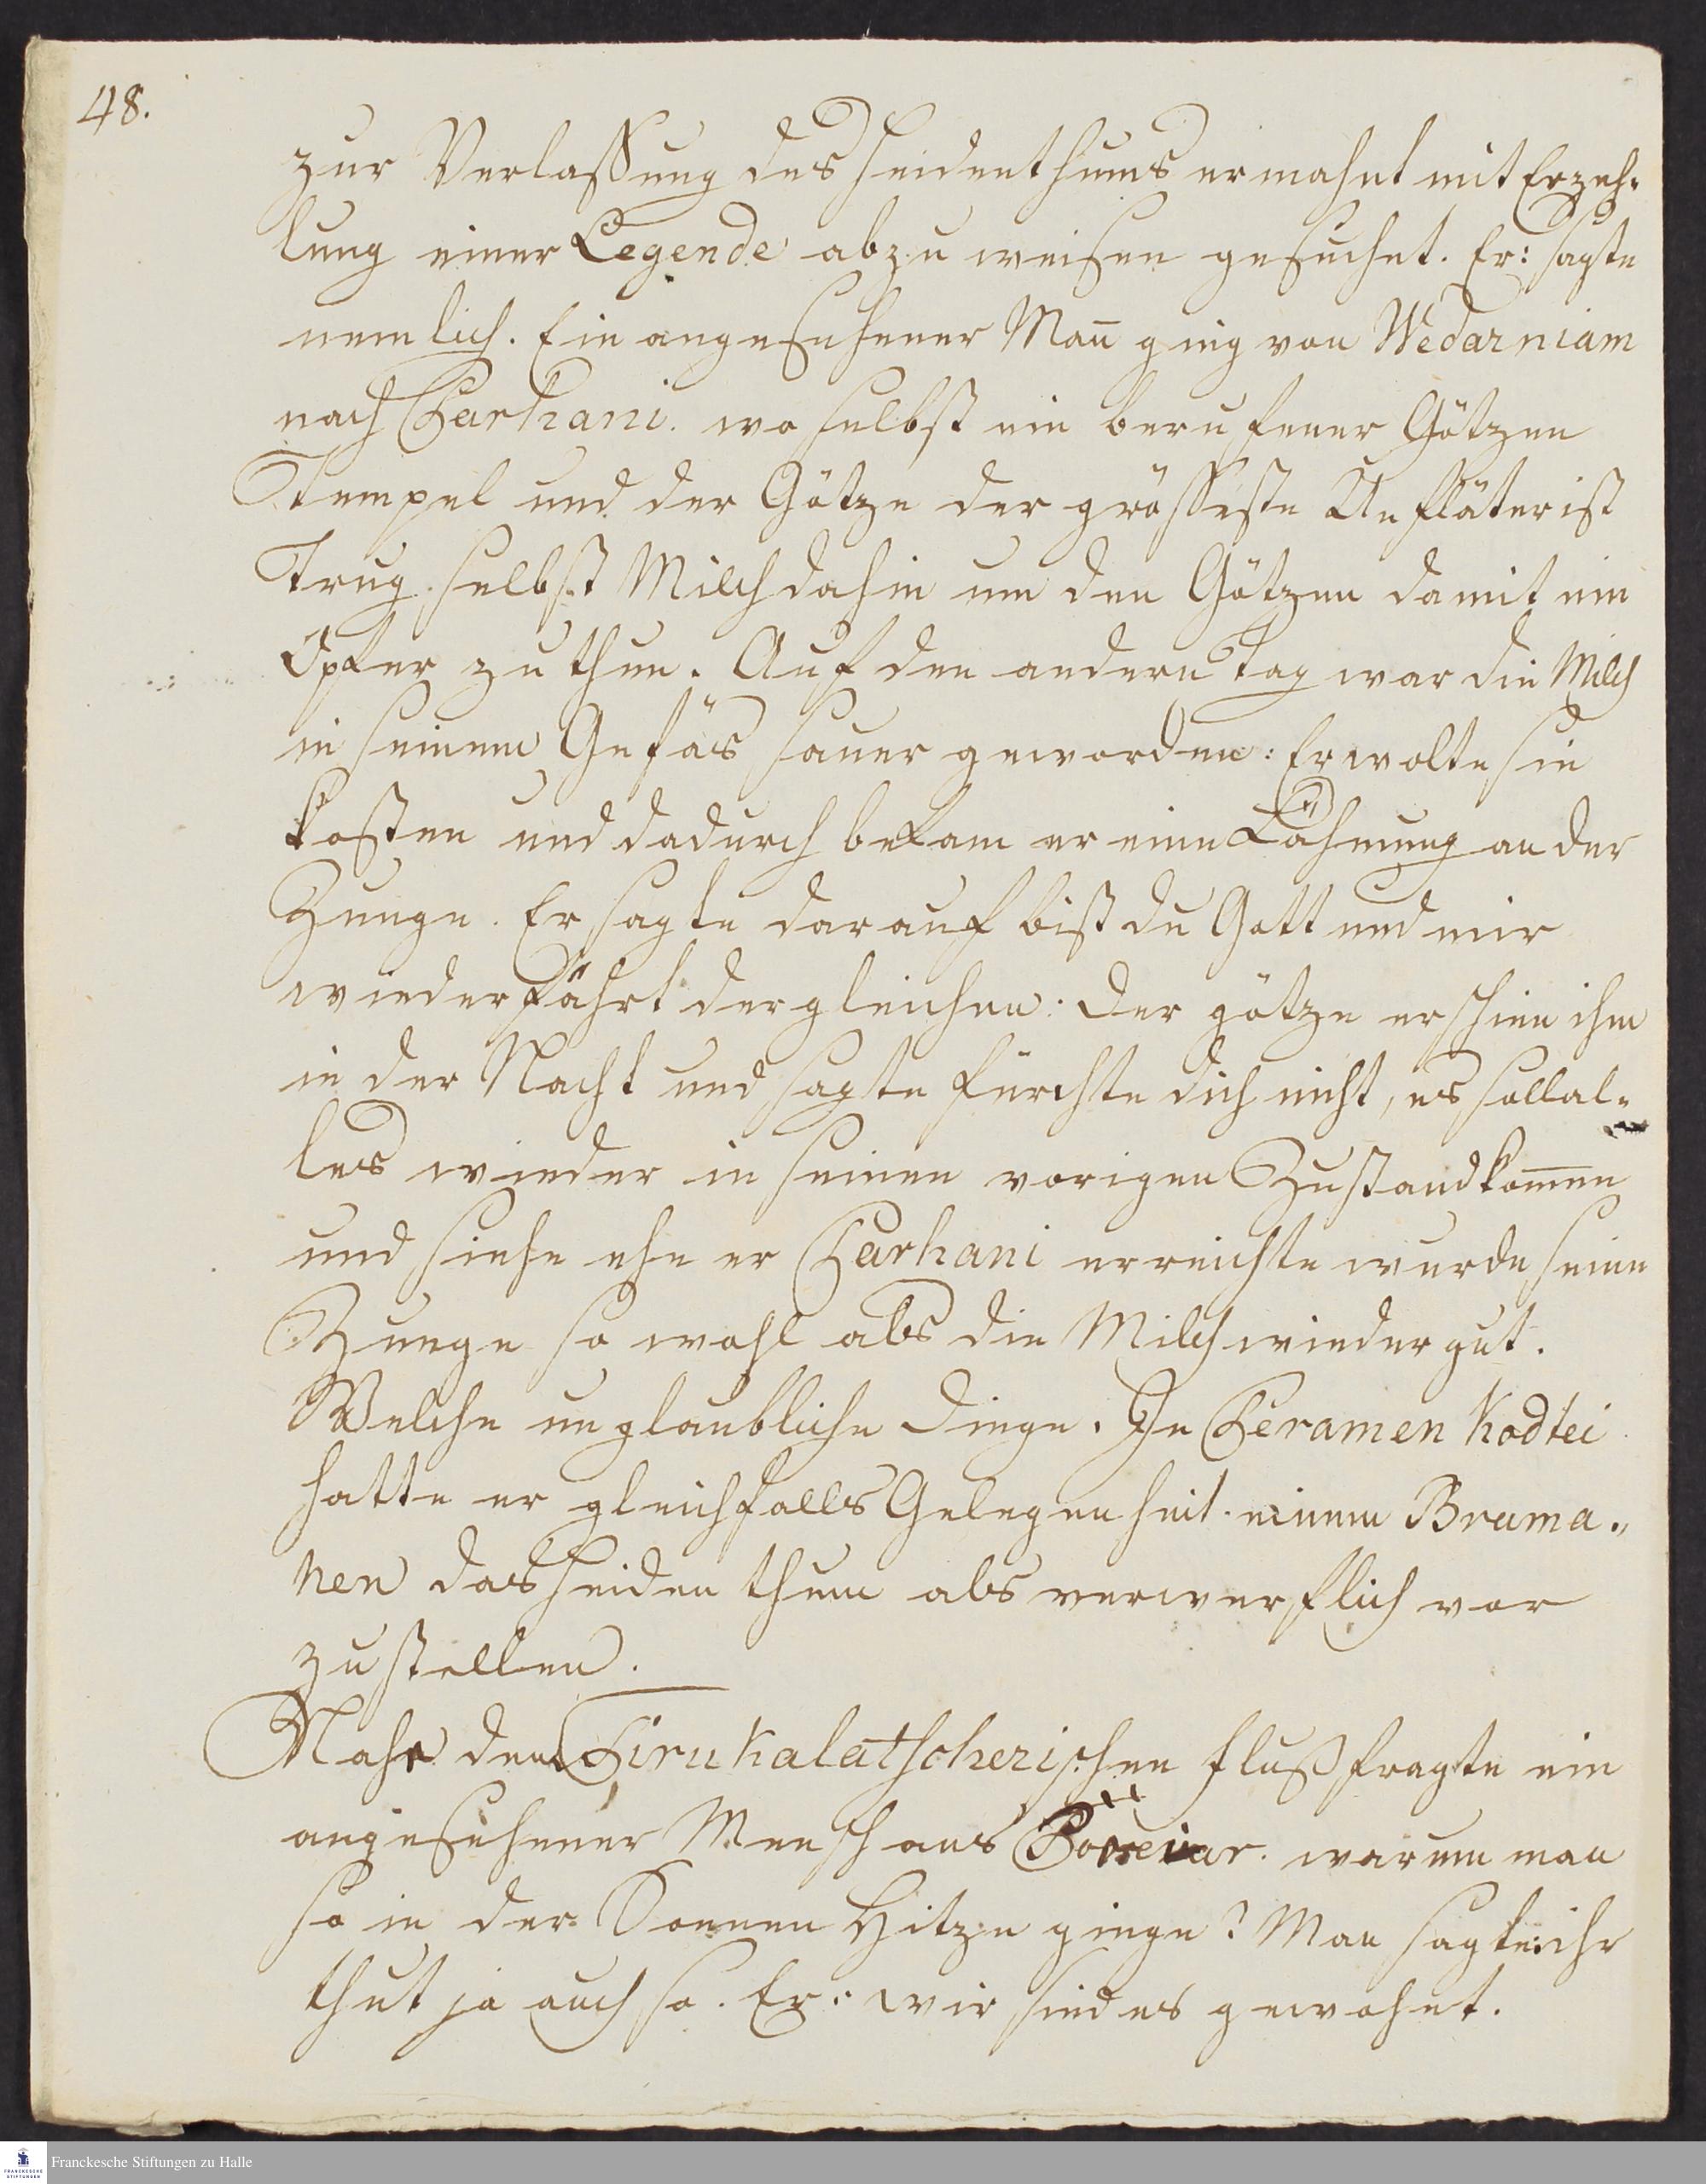 48.
zur Verlaßung des Heidenthums ermahnt mit Erzeh-
lung einer Legende abzuweisen gesuchet. Er: sagte
nemlich. Ein angesehener Mañ ging von Wedarniam
nach Tarhani. wo selbst ein berufener Götzen
Tempel und der Götze der grösseste Unfläter ist
Trug selbst Milch dahin um den Götzen damit ein
Opfer zu thun. Auf den andern Tag war die Milch
in seinem Gefäs sauer geworden: Er wolte sie
kosten und dadurch bekam er eine Lähmung an der
Zunge. Er sagte darauf bist du Gott und mir
wiederfährt dergleichen: Der götze erschien ihm
in der Nacht und sagte fürchte dich nicht, es soll al-
les wieder in seinen vorigen Zustand kom̄en
und siehe ehe er Tarhani erreichte wurde seine
Zunge so wohl als die Milch wieder gut.
Welche unglaubliche Dinge. In Teramen Kodtei
hatte er gleichfalls Gelegenheit einem Brama-
nen das Heidenthum als verwerflich vor
zustellen.
Nahe dem Tirukalatscherischen Fluß fragte ein
angesehener Mensch aus warum man
so in der Sonnen Hitze ginge? Man sagte: ihr
thut ja auch so. Er: wir sind es gewohnt.
Franckesche Stiftungen zu Halle